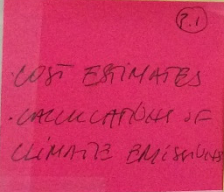 P.1
· COST ESTIMATES
· CALCULATIONS OF
CLIMATE EMISSIONS